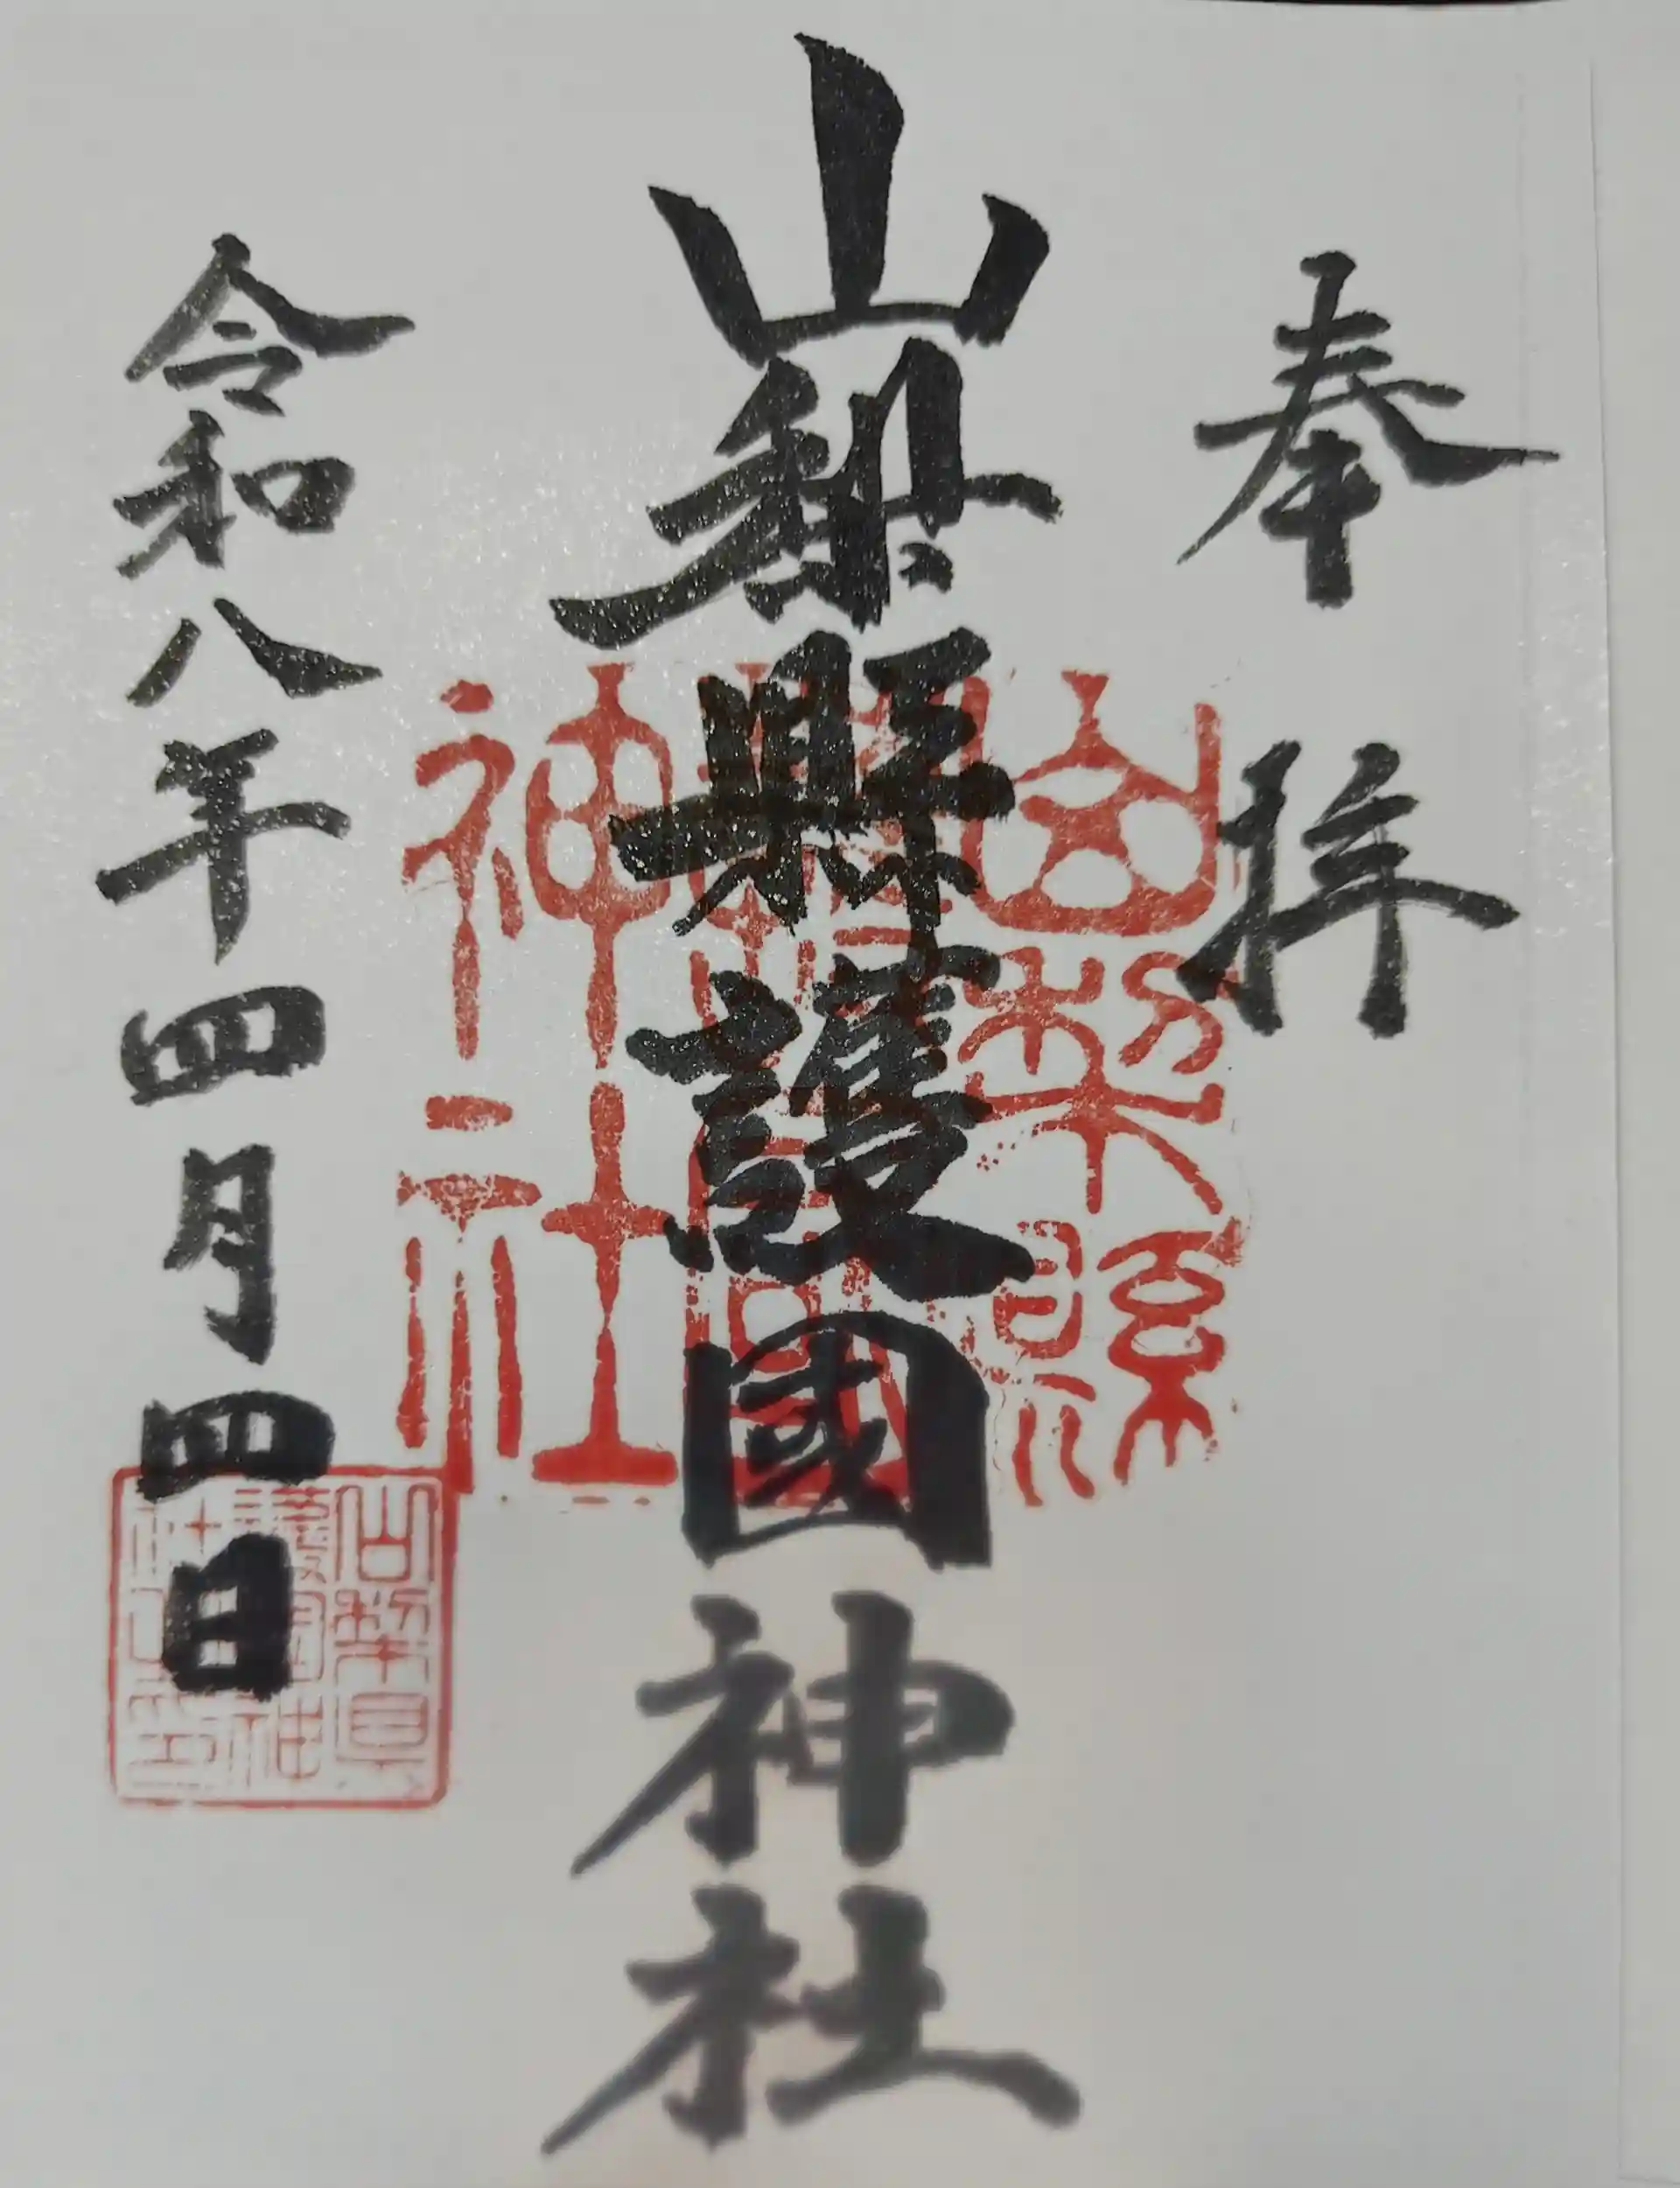 奉拝
山梨縣護國神社
令和八年四月四日
山梨縣
護國
神社
山梨県
護国神
社之印